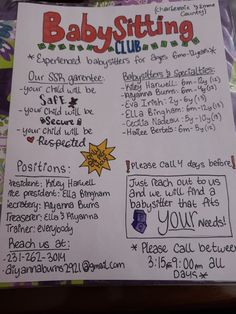 (Charlevoix & Emmet
County)
Babysitting
CLUB
*Experienced babysitters for ages 6m-12yrs*
Our SSR garentee:
-your child will be
SaFe
-your child will be
Secure
-your child will be
Respected
Babysitters & Specialties:
-Kiley Harwell 6m-6y (12)
-Aiyanna Burns 6m-
-Eva Irish: 2y-6y (13)
-Ella Bingham: 6m-
-Cecilia Nadeau: 5y-10y
-Hailee Bertels: 6m-
Positions:
President: Kiley Harwell
Vice president: Ella Bingham
Secretary: Aiyanna Burns
Treasurer: Ella & Aiyanna
Trainer: everybody
Reach us at:
-231-262-3014
-aiyannaburns2921@gmail.com
Please call 4 days before!
Just Reach out to us
and we will find a
babysitter that fits
YOUR
Needs!
*Please Call between
3:15-9:00pm all
Days*